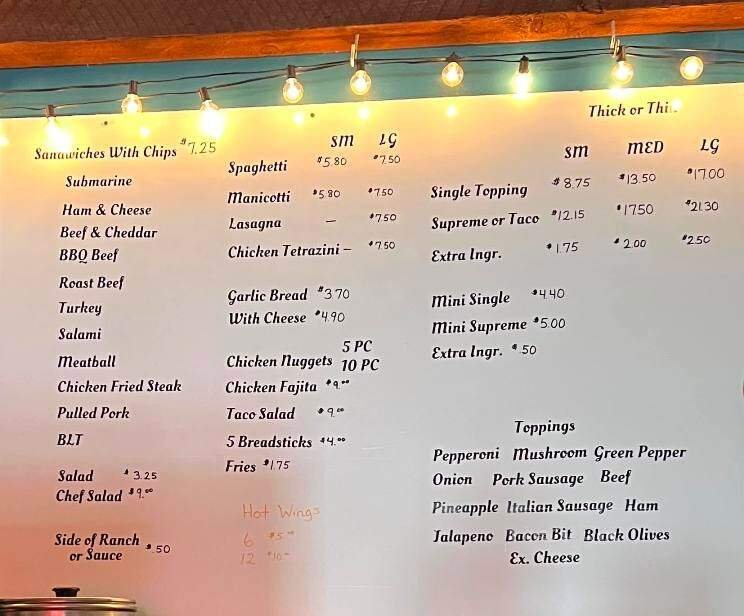 Sandwiches With Chips $7.25
Submarine
Ham & Cheese
Beef & Cheddar
BBQ Beef
Roast Beef
Turkey
Salami
Meatball
Chicken Fried Steak
Pulled Pork
BLT
Salad $3.25
Chef Salad $9.00
Side of Ranch
or Sauce $.50
SM LG
Spaghetti $5.80 $7.50
Manicotti $5.80 $7.50
Lasagna — $7.50
Chicken Tetrazini — $7.50
Garlic Bread $3.70
With Cheese $4.90
Chicken Nuggets 5 PC
10 PC
Chicken Fajita $9.00
Taco Salad $9.00
5 Breadsticks $4.00
Fries $1.75
Hot Wings
6 $5
12 $10
Thick or
SM MED LG
Single Topping $8.75 $13.50 $17.00
Supreme or Taco $12.15 $17.50 $21.30
Extra Ingr. $1.75 $2.00 $2.50
Mini Single $4.40
Mini Supreme $5.00
Extra Ingr. $.50
Toppings
Pepperoni Mushroom Green Pepper
Onion Pork Sausage Beef
Pineapple Italian Sausage Ham
Jalapeno Bacon Bit Black Olives
Ex. Cheese